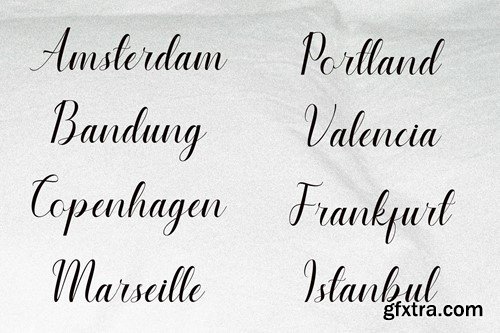 Amsterdam
Bandung
Copenhagen
Marseille
Portland
Valencia
Frankfurt
Istanbul
gfxtra.com